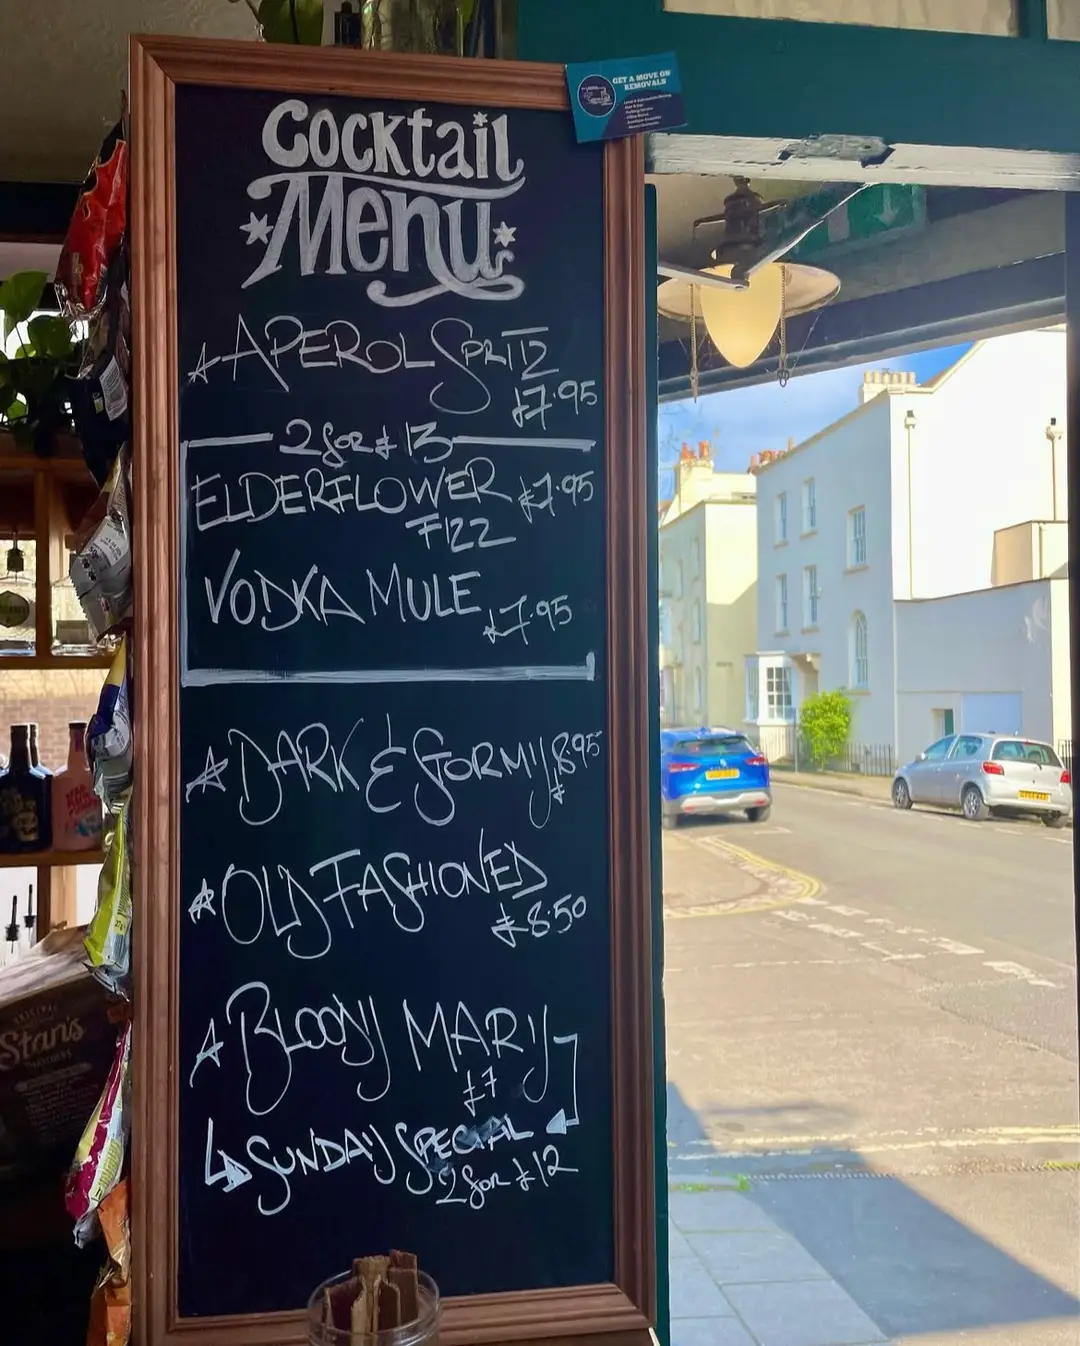 Cocktail
Menu
APEROL SPRITZ
£7.95
2 for £13
ELDERFLOWER £7.95
FIZZ
VODKA MULE
£7.95
DARK & STORMY £8.95
OLD FASHIONED
£8.50
BLOODY MARY
£7
SUNDAY SPECIAL
2 for £12
GET A MOVE ON
REMOVALS
ORIGINAL
Stan's